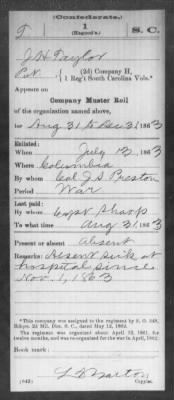 (Confederate.)
T 1 S. C.
(Hagood's)
J H Taylor
Pvt, (2d) Company H,
1 Reg't South Carolina Vols.*
Appears on
Company Muster Roll
of the organization named above,
for Aug 31 to Dec 31, 1863
Enlisted:
When July 13, 1863
Where Columbia
By whom Col J. S. Preston
Period War
Last paid:
By whom Capt Sharp
To what time Aug 31, 1863
Present or absent Absent
Remarks: Absent sick at
hospital since
Nov. 1, 1863
*This company was assigned to the regiment by S. O.
The regiment was organized about April 12, 1861, for
twelve months, and was re-organized for the war in April, 1862.
Book mark:
(642) Copyist.